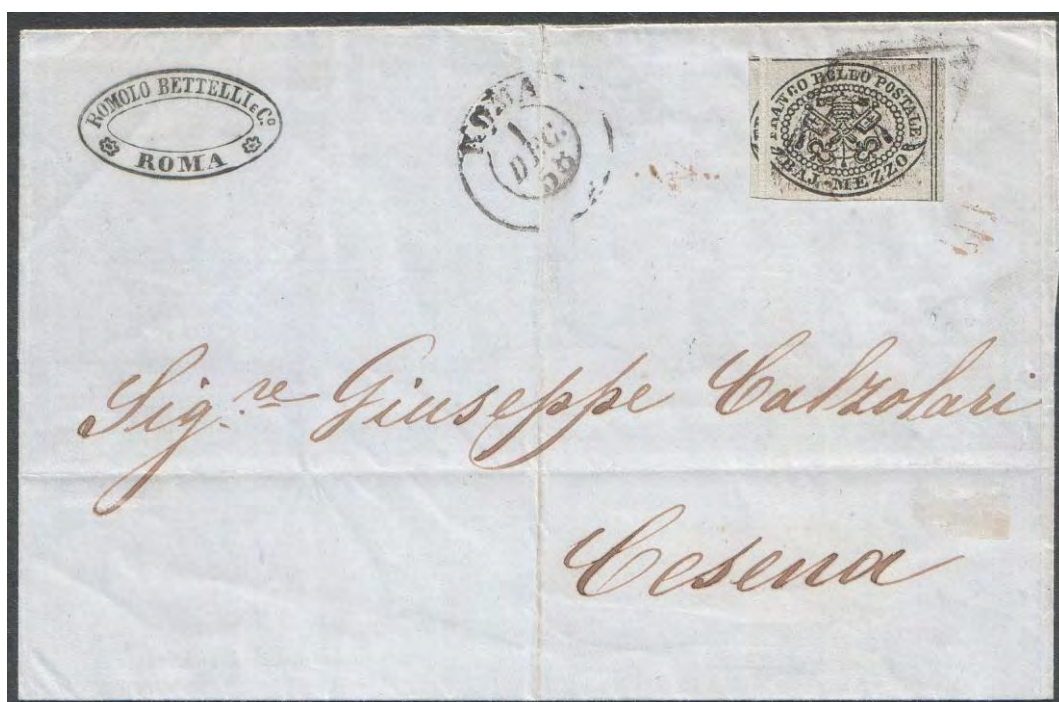 ROMOLO BETTELLI E Cº
ROMA
ROMA
1
DEC.
58
FRANCO BOLLO POSTALE
BAJ. MEZZO
Sig.re Giuseppe Calzolari
Cesena